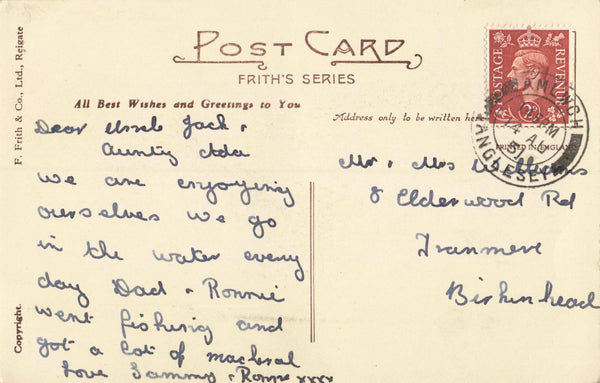 POST CARD
FRITH'S SERIES
All Best Wishes and Greetings to You
Address only to be written here
PRINTED IN ENGLAND
F. Frith & Co., Ltd., Reigate
Copyright.
POSTAGE
REVENUE
ANGLESEY
Dear Uncle Jack &
Aunty Ada
we are enjoying
ourselves we go
in the water every
day Dad & Ronnie
went fishing and
got a lot of mackeral
Love Sammy & Ronnie xxxx
Mr & Mrs Williams
8 Elderwood Rd
Tranmere
Birkenhead